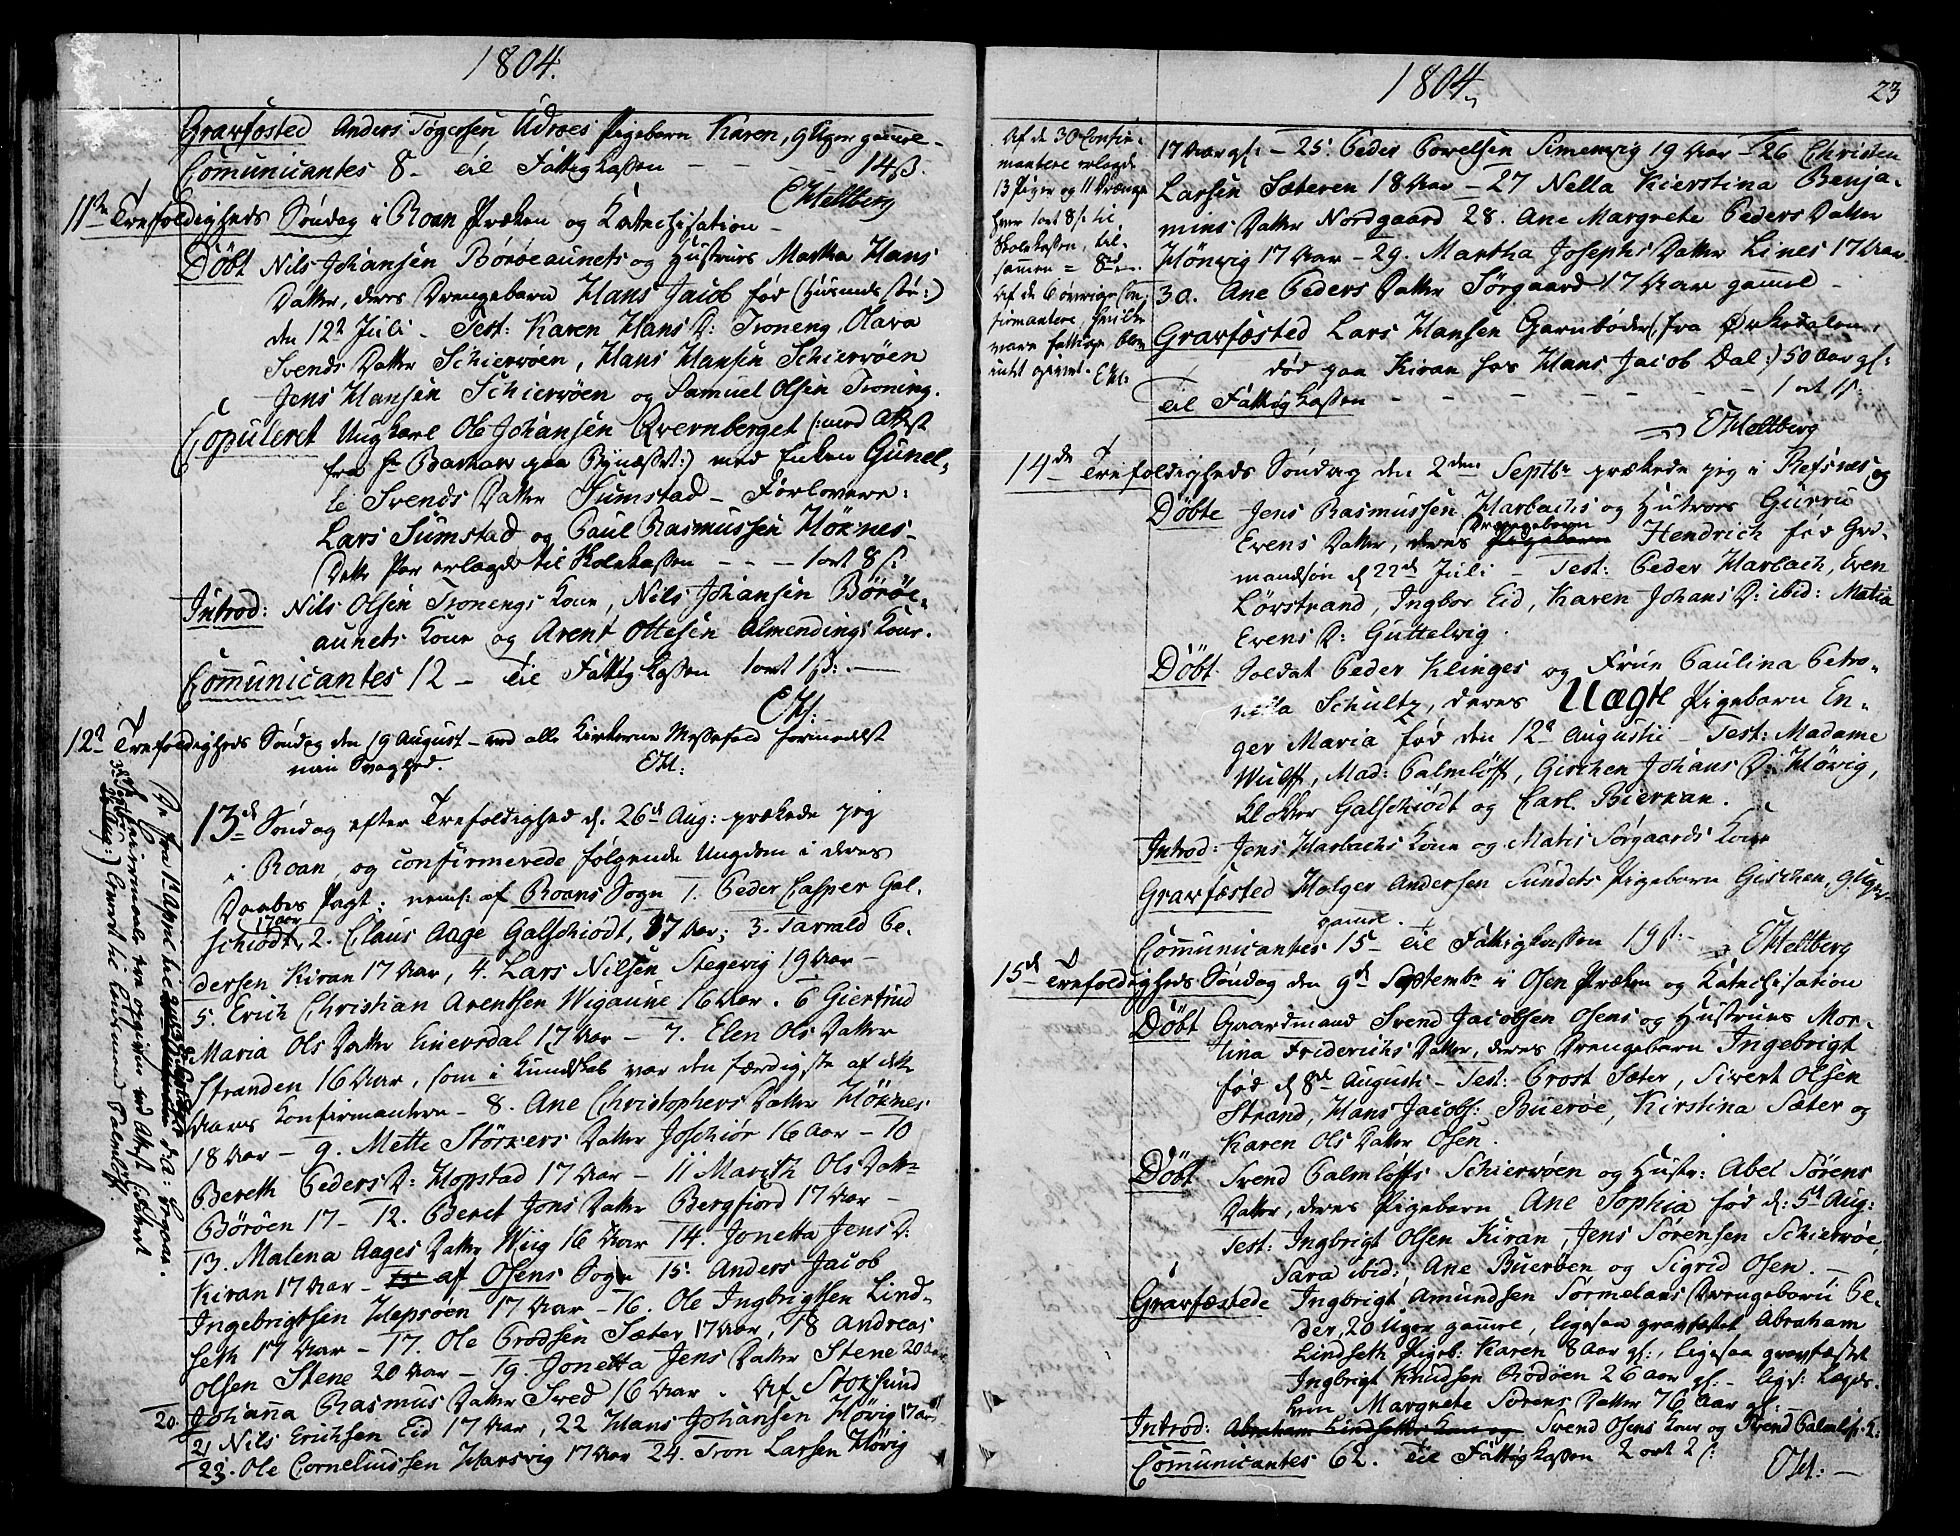 1804.
Gravfæsted Anders Tøgersen Udroes Pigebarn Karen, 9 Uger gamel
Communicantes 8 - til Fattig Kassen - - 14 ß.
EHeltberg
11te Trefoldigheds Søndag i Roan Præken og Katechisation -
Døbt Nils Johansen Børøeaunets og Hustrues Martha Hans
Datter, deres Drengebarn Hans Jacob fød
den 12te Juli - Test: Karen Hans D: Troneng, Olava
Svends Datter Schiervøen, Hans Hansen Schiervøen
Jens Hansen Schiervøen og Samuel Olsen Troning.
Copuleret Ungkarl Ole Johansen Qvernberget (: med Attest
fra Hr Barhow paa Bynæsset:) med Enken Gunel-
le Svends Datter Sumstad - Forlovere:
Lars Sumstad og Paul Rasmussen Høknes -
Dette Par erlagde til Skolekassen - - - 1 ort 8 ß.
Introd: Nils Olsen Tronengs Kone, Nils Johansen Børøe-
aunets Kone og Arent Ottesen Almendings Kone.
Communicantes 12 - Til Fattig Kassen 1 ort 1 ß: -
EH:
12te Trefoldigheds Søndag den 19 August - ved alle Kirkerne Messefald formedelst
min Svaghed. EH:
13de Søndag efter Trefoldighed d. 26de Aug: prækede jeg
i Roan, og confirmerede følgende Ungdom i deres
Daabes Pagt; neml: af Roans Sogn 1. Peder Casper Gal-
schiødt, 17 aar 2. Claus Aage Galschiødt, 17 Aar; 3. Tarrald Pe-
dersen Kiran 17 Aar, 4. Lars Nilsen Stegevig 19 Aar -
5. Erich Christian Arentsen Wigaune 16 Aar. 6 Giertrud
Maria Ols Datter 17 Aar - 7. Elen Ols Datter
Stranden 16 Aar, som i Kundskab var den færdigste af dette
Aars Konfirmantere - 8. Ane Christophers Datter Høknes
18 Aar - 9. Mette Størkers Datter Joschiør 16 Aar - 10
Bereth Peders D: Hopstad 17 Aar - 11 Mareth Ols Datter
Børøen 17 - 12. Beret Jons Datter Bergfiord 17 Aar -
13. Malena Aages Datter Wiig 16 Aar 14. Jonetta Jens D:
Kiran 17 Aar - 15 af Osens Sogn 15. Anders Jacob
Ingebrigtsen Hepsøen 17 Aar - 16. Ole Ingbrigtsen Lind-
seth 17 Aar - 17. Ole Trodsen Sæter 17 Aar, 18 Andreas
Olsen Stene 20 Aar - 19. Jonetta Jens Datter Stene 20 Aar
20. Johanna Rasmus Datter Sved 16 Aar. Af Stoksund
21 Nils Erichsen Eid 17 Aar, 22 Hans Johansen Høvig 17 aar
23. Ole Corneliussen Harsvig 17 Aar 24. Tron Larsen Høvig
1804. 23
Af de 30 Confir-
mantere erlagde
13 Piger og 11 Drænge
hver 1 ort 8 ß til
Skolekassen, til-
sammen = 8 rd
Af de 6 øvrige Con-
firmantere, hvilke
vare fattige blev
intet givet. EH:
17 Aar gl: - 25. Peder Povelsen Simenvig 19 Aar - 26 Christen
Larsen Sæteren 18 Aar - 27 Nella Kierstina Benja-
mins Datter Nordgaard 28. Ane Margrete Peders Datter
Hønvig 17 Aar - 29. Martha Josephs Datter Lines 17 Aar
30. Ane Peders Datter Sørgaard 17 Aar gamel -
Gravfæsted Lars Hansen Garnbøder (: fra Ørkedalen,
død paa Kiran hos Hans Jacob Dal:) 50 Aar gl:
Til Fattig Kassen - - - - - - - 1 ort
EHeltberg
14de Trefoldigheds Søndag den 2den Septbr prækede jeg i Refsnes og
Døbte Jens Rasmussen Harbachs og Hustrues Gurru
Evens Datter, deres Pigebarn Drengebarn Hendrich fød Gro-
mandsøn d 22de Juli - Test: Peder Harbach, Even
Lørstrand, Ingbor Eid, Karen Johans D: ibid: Matia
Evens D: Guttelvig.
Døbt Soldat Peder Klinges og Frue Paulina Petro-
nella Schultz, deres Uægte Pigebarn En-
ger Maria fød den 12te Augusti - Test: Madame
Wulff, Mad: Palmløff, Gischen Johans D: Høvig,
Klokker Galschiødt og Carl Bierkan.
Introd: Jens Harbachs Kone og Matis Sørgaards Kone
Gravfæsted Holger Andersen Sundets Pigebarn Gischen, 9 Uger
gamel.
Communicantes 15 - Til Fattigkassen 19 ß - EHeltberg
15de Trefoldigheds Søndag den 9de Septembr i Osen Præken og Katechisation
Døbt Gaardmand Svend Jacobsen Osens og Hustrues Mor-
tina Friderichs Datter, deres Drengebarn Ingebrigt
fød d 8de Augusti - Test: Trost Sæter, Sivert Olsen
Strand, Hans Jacobs: Buerøe, Kirstina Sæter og
Karen Ols Datter Osen.
Døbt Svend Palmløffs Schiervøen og Hustr: Abel Sørens
Datter, deres Pigebarn Ane Sophia fød d: 5te Aug:
Test: Ingbrigt Olsen Kiran, Jens Sørensen Schiervøe,
Sara ibid: Ane Buerøen og Sigrid Osen. -
Gravfæstede Ingbrigt Amundsen Sørmelans Drengebarn Pe-
der, 20 Uger gamel, ligesaa gravfæstet Abraham
Lindseth Pigeb: Karen 8 Aar gl:, ligesaa gravfæstet
Ingbrigt Knudsen Rodøen 26 aar gl - ligs: Lægds-
lem Margrete Sørens Datter 76 Aar gl: -
Introd: Abraham Lindseths Kone og Svend Osens Kone og Svend Palmløfs K:
Communicantes 62. Til Fattig Kassen 2 ort 2 ß:
EH: -